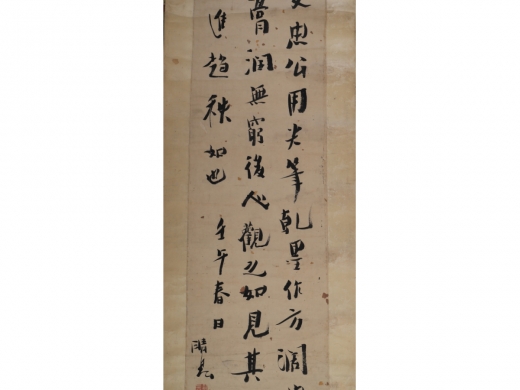 忠公用尖筆乾墨作方濶
膏潤無窮後人觀之如見其
進趨如也
壬午春日